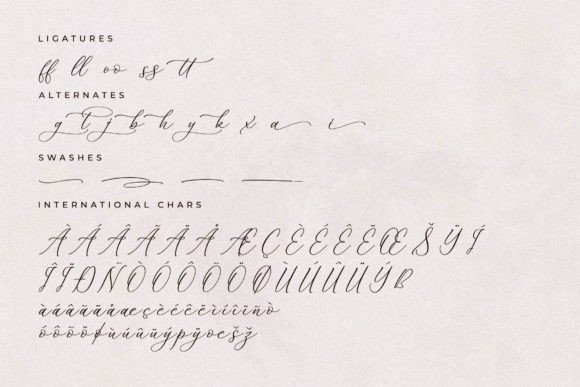 LIGATURES
ff ll oo ss tt
ALTERNATES
g t j b h y k x a i
SWASHES
INTERNATIONAL CHARS
À Á Â Ã Ä Å Æ Ç È É Ê Ë Œ Š Ÿ Í
Î Ï Ð Ñ Ò Ó Ô Õ Ö Ø Ù Ú Û Ü Ý ß
à á â ã ä å æ ç è é ê ë ì í î ï ñ ò
ó ô õ ö ø ù ú û ü ý p ÿ œ š ž